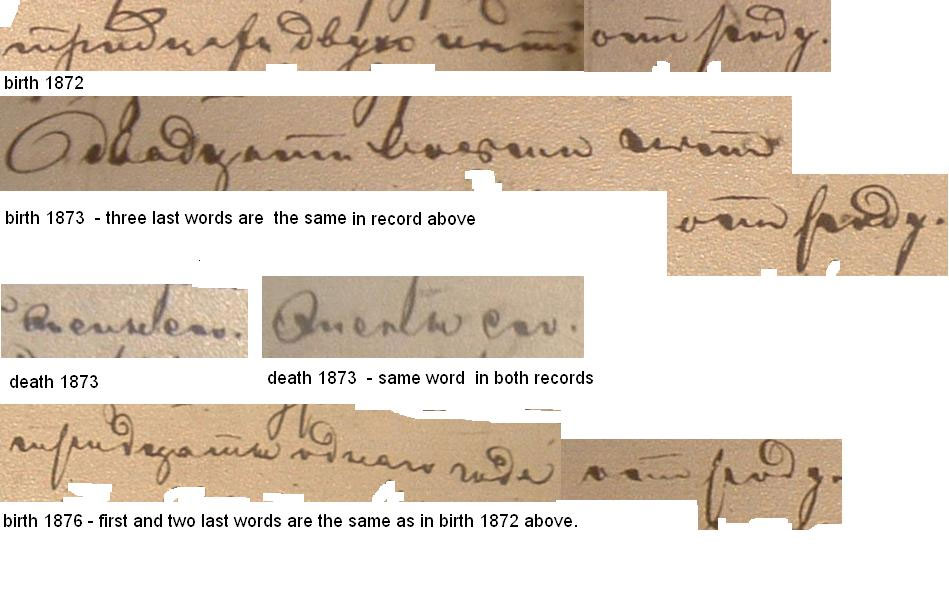 тридцати двухъ летъ отъ роду.
birth 1872
Двадцати восьми летъ
отъ роду.
birth 1873 - three last words are the same in record above
death 1873
death 1873 - same word in both records
тридцати одного года отъ роду.
birth 1876 - first and two last words are the same as in birth 1872 above.